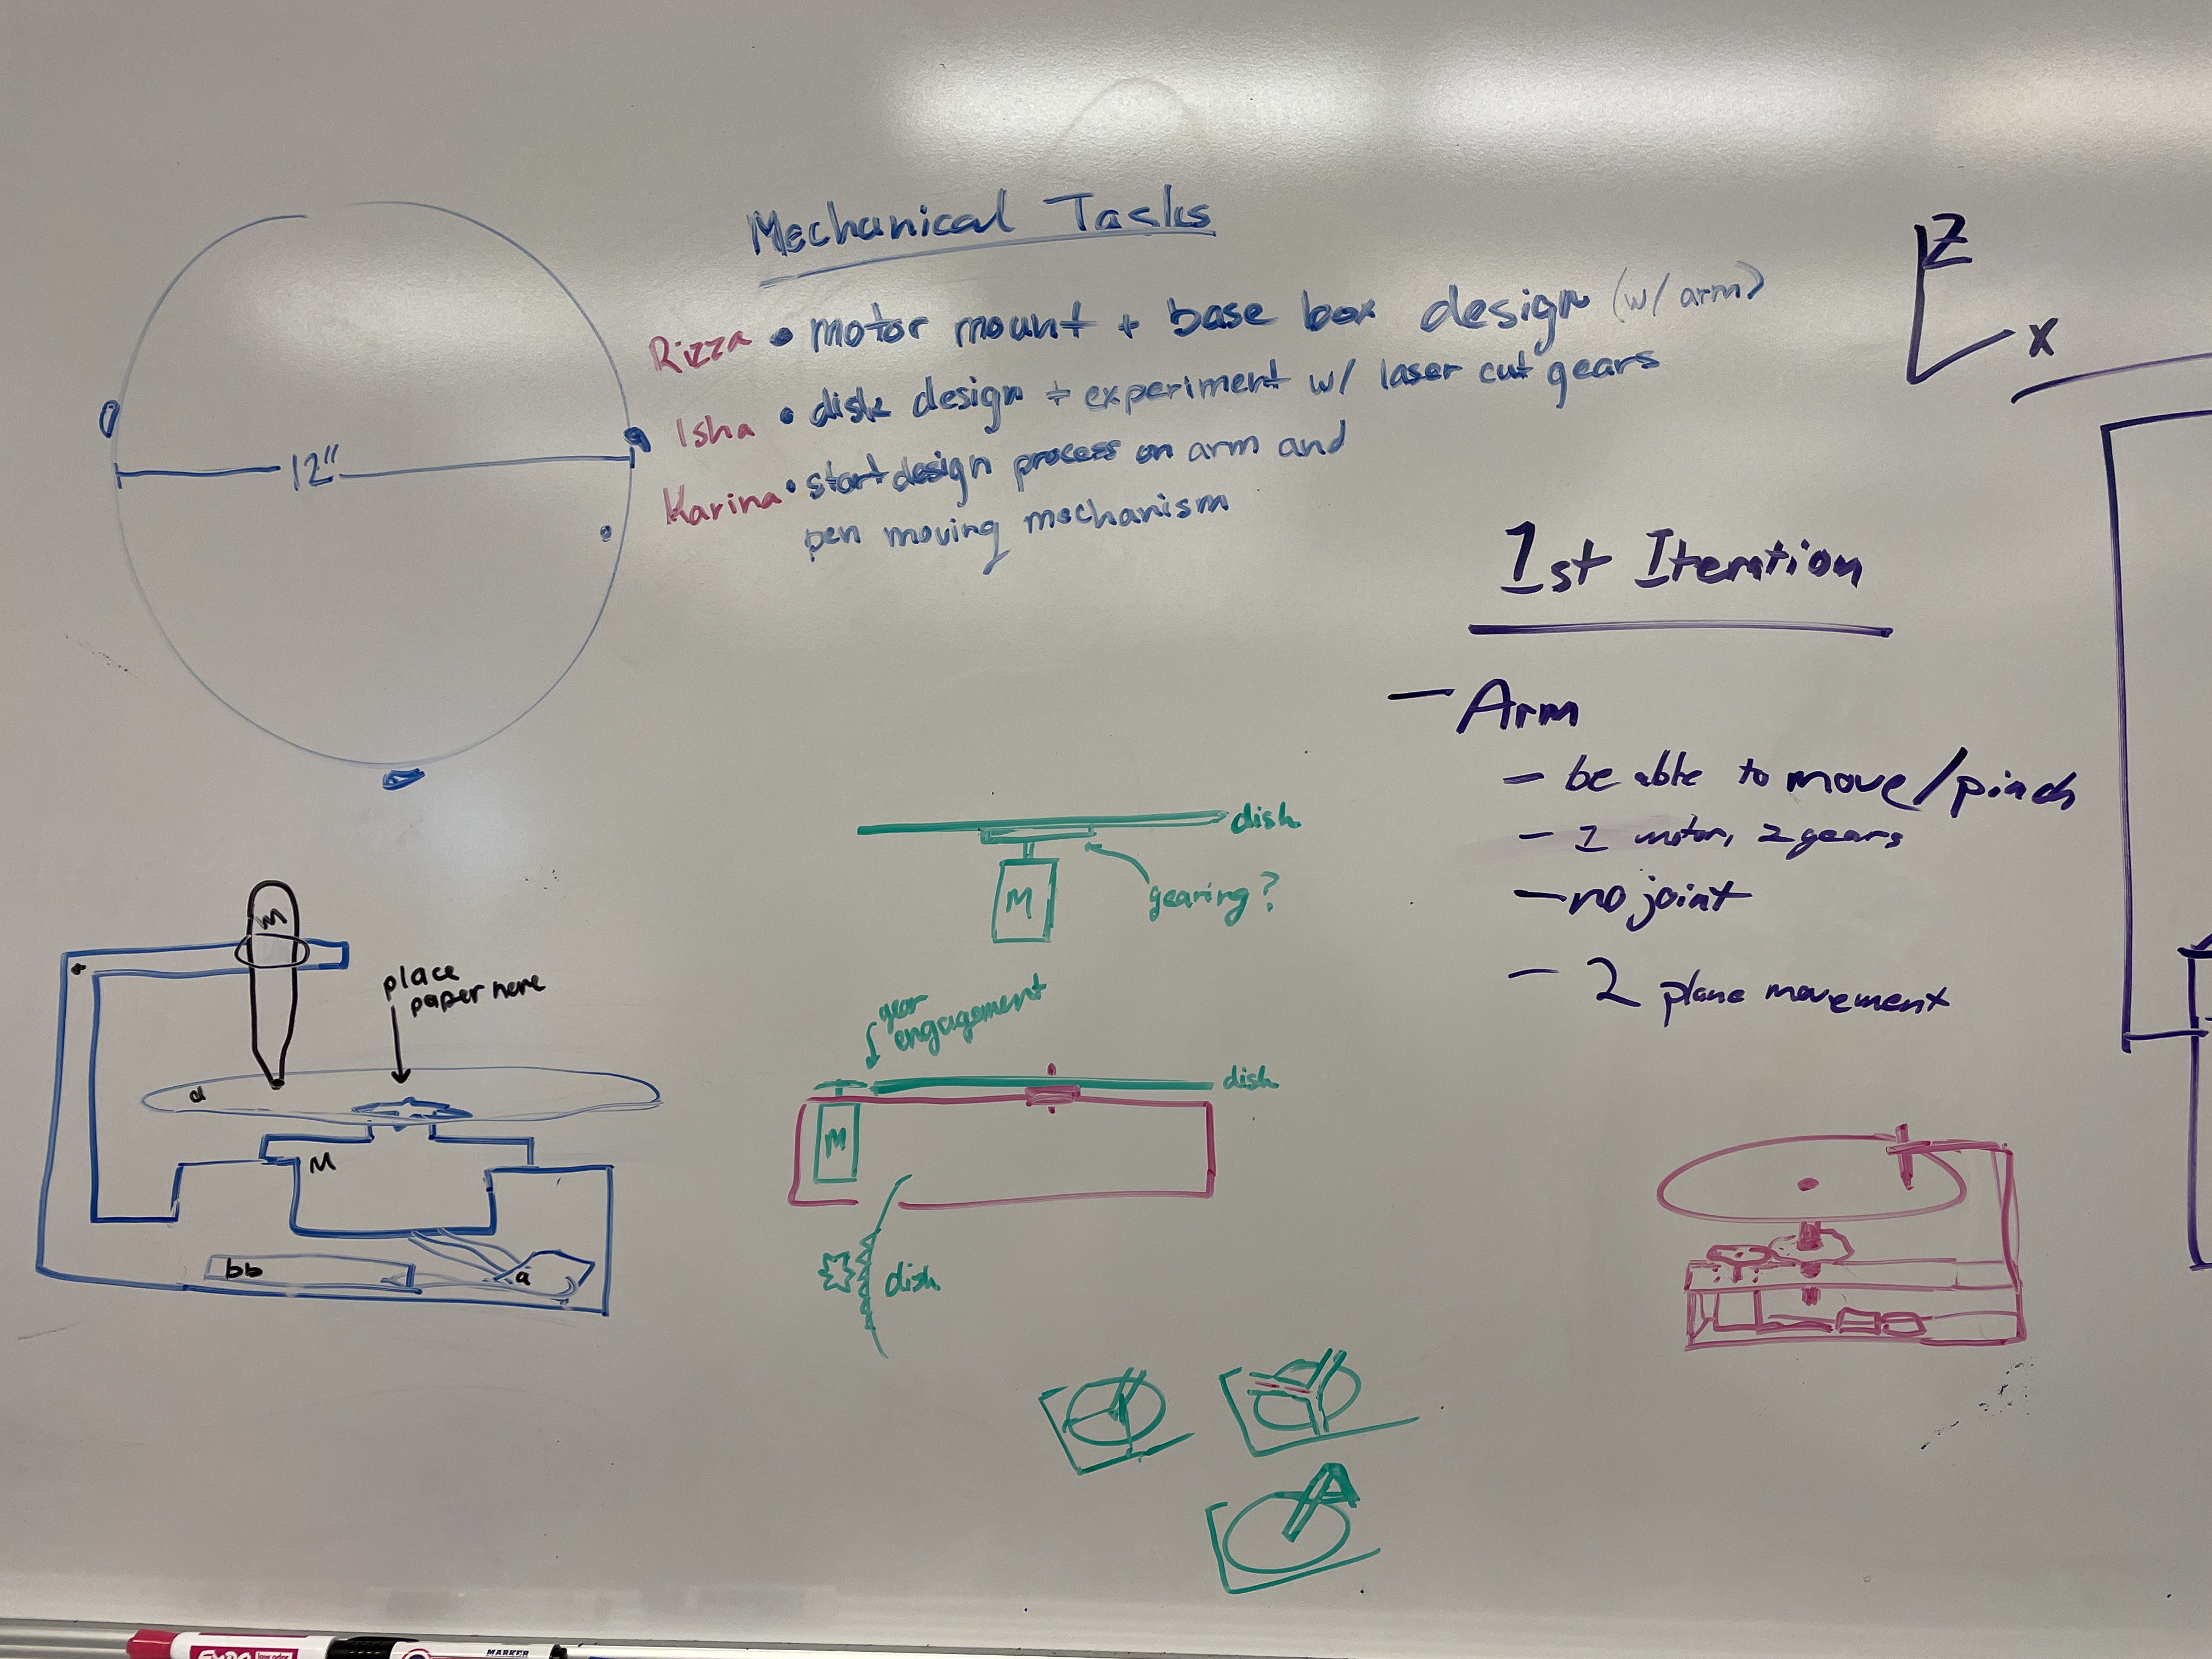 Mechanical Tasks
Rizza • motor mount + base box design (w/ arm)
Isha • disk design + experiment w/ laser cut gears
Karina • start design process on arm and
pen moving mechanism
12"
Z
X
1st Iteration
— Arm
— be able to move/pinch
— 1 motor, 2 gears
— no joint
— 2 plane movement
disk
M
gearing?
m
place
paper here
d
M
bb
a
gear
engagement
disk
M
disk
EXPO
low odor
MARKER